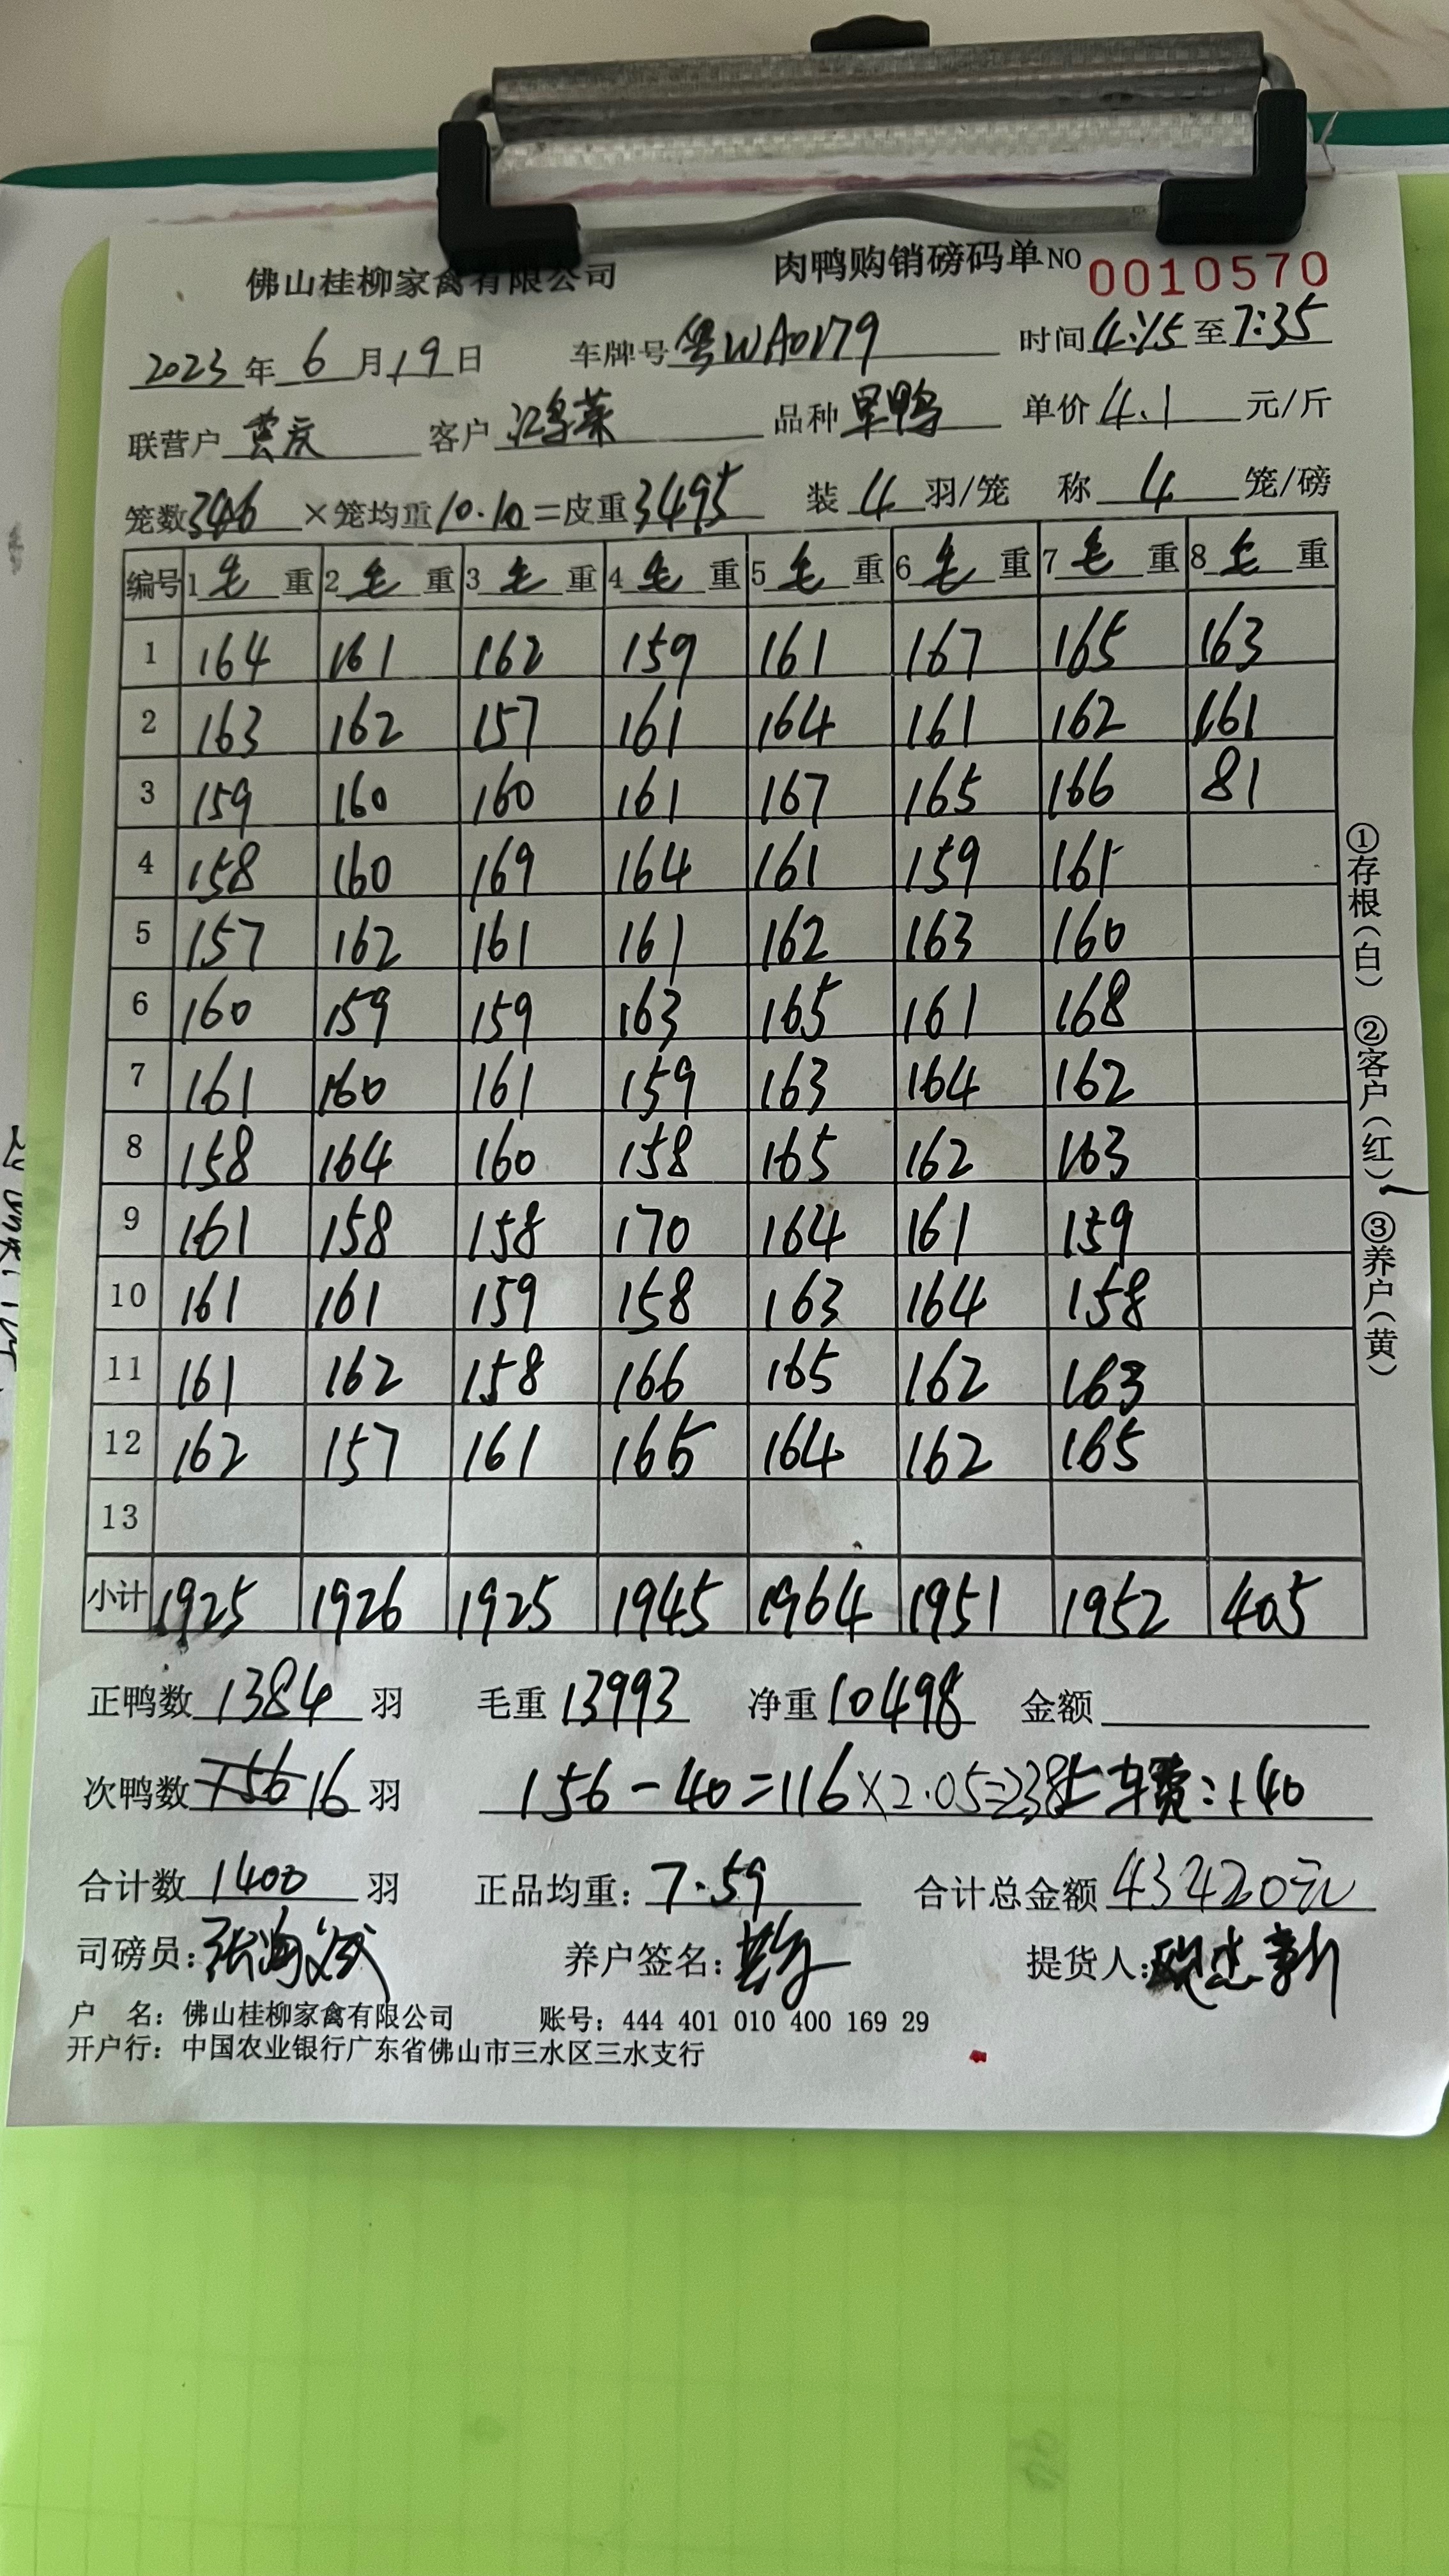 佛山桂柳家禽有限公司 肉鸭购销磅码单 NO 0010570
2023 年 6 月 19 日 车牌号 粤WA0179 时间 4:15 至 7:35
联营户 客户 鸿荣 品种 旱鸭 单价 4.1 元/斤
笼数 346 ×笼均重 10.10 =皮重 3495 装 4 羽/笼 称 4 笼/磅
编号 1 毛 重 2 毛 重 3 毛 重 4 毛 重 5 毛 重 6 毛 重 7 毛 重 8 毛 重
1 164 161 162 159 161 167 165 163
2 163 162 157 161 164 161 162 161
3 159 160 160 161 167 165 166 81
4 158 160 169 164 161 159 161
5 157 162 161 161 162 163 160
6 160 159 159 163 165 161 168
7 161 160 161 159 163 164 162
8 158 164 160 158 165 162 163
9 161 158 158 170 164 161 159
10 161 161 159 158 163 164 158
11 161 162 158 166 165 162 163
12 162 157 161 165 164 162 165
13
小计 1925 1926 1925 1945 1964 1951 1952 405
正鸭数 1384 羽 毛重 13993 净重 10498 金额
次鸭数 16 羽 156-40=116×2.05=238 车费:+40
合计数 1400 羽 正品均重: 7.59 合计总金额 43420元
司磅员: 养户签名: 提货人:
户 名: 佛山桂柳家禽有限公司 账号: 444 401 010 400 169 29
开户行: 中国农业银行广东省佛山市三水区三水支行
①存根(白) ②客户(红) ③养户(黄)